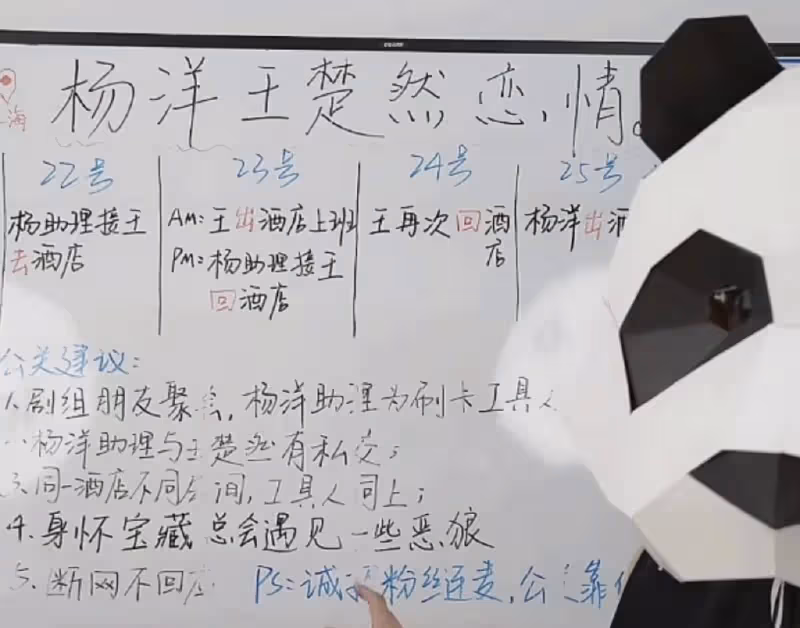 海
杨洋王楚然恋情。
22号
杨助理接王
去酒店
23号
AM:王出酒店上班
PM:杨助理接王
回酒店
24号
王再次回酒
店
25号
杨洋出酒
公关建议:
1.剧组朋友聚,杨洋助理为刷卡工具人
杨洋助理与王楚然有私交;
3.同一酒店不同间,工具人同上;
4.身怀宝藏总会遇见一些恶狼
5.断网不回应
PS:诚邀粉丝连麦,公关靠你